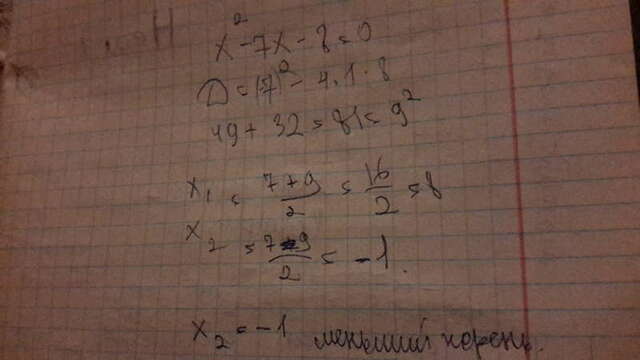 x² - 7x - 8 = 0
D = (7)² - 4·1·8
49 + 32 = 81 = 9²
x₁ = 7+9/2 = 16/2 = 8
x₂ = 7-9/2 = -1.
x₂ = -1 меньший корень.